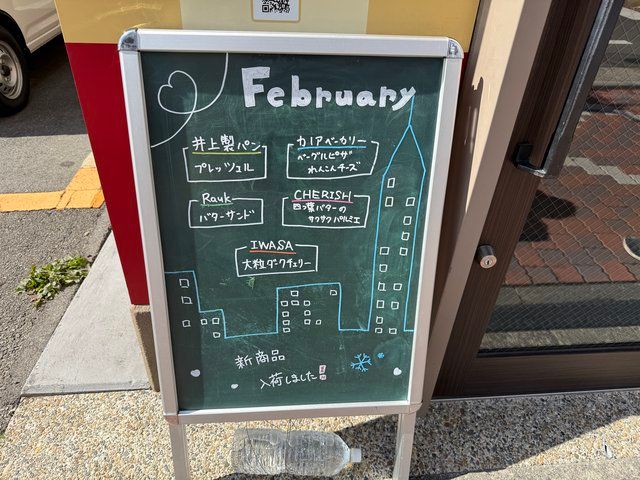 February
井上製パン
プレッツェル
カノアベーカリー
ベーグルピザ
れんこんチーズ
Rauk
バターサンド
CHERISH
四つ葉バターの
サクサクパルミエ
IWASA
大粒ダークチェリー
新商品
入荷しました!